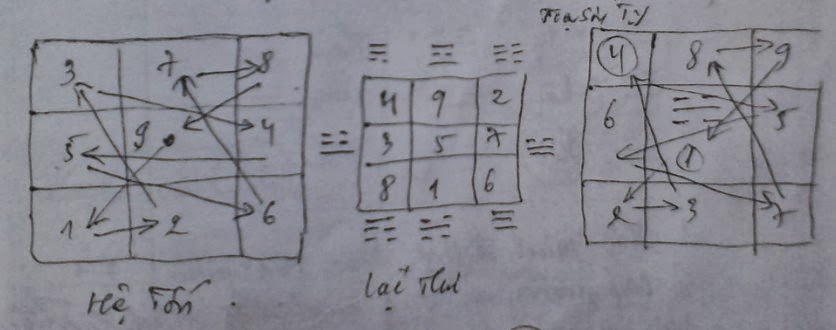 3 7 8
5 9 4
1 2 6
Hệ Tốn.
4 9 2
3 5 7
8 1 6
Lạc Thư
4 8 9
6 1 5
2 3 7